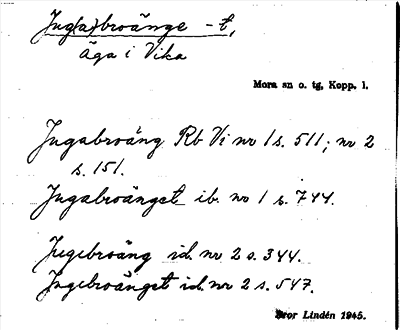 Jug(a)broänge -t,
äga i Vika
Mora sn o. tg, Kopp. l.
Jugabroäng Rb Vi nr 1 s. 511; nr 2
s. 151.
Jugabroänget ib. nr 1 s. 744.
Jugebroäng id. nr 2 s. 344.
Jugebroänget id. nr 2 s. 547.
Bror Lindén 1945.